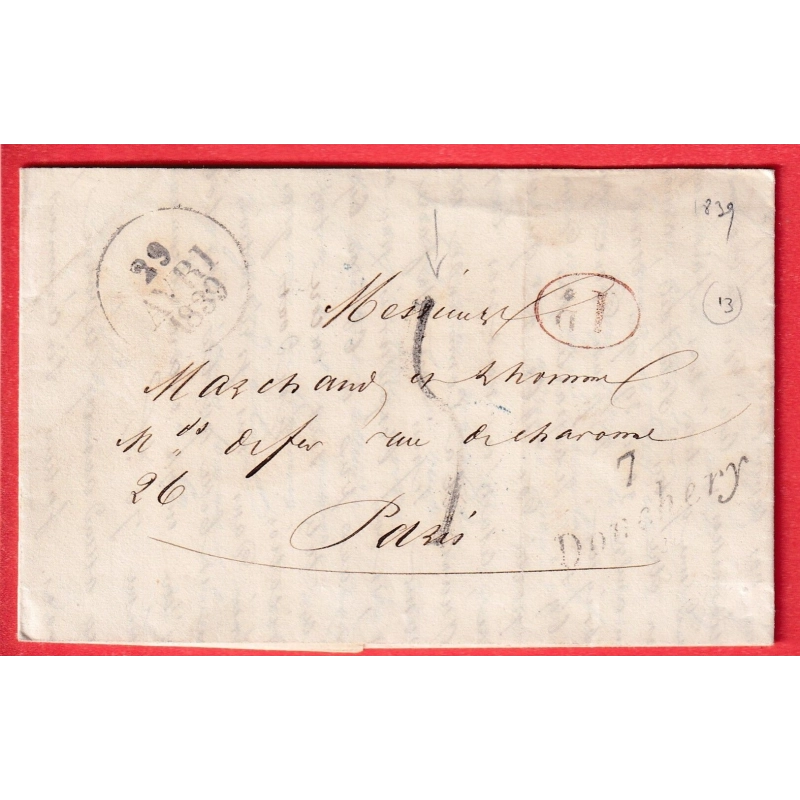 1839
29
AVRI
1839
13
Messieurs
Marchand et Lhomme
Mds de fer rue de charonne
26
Paris
7
Donchery